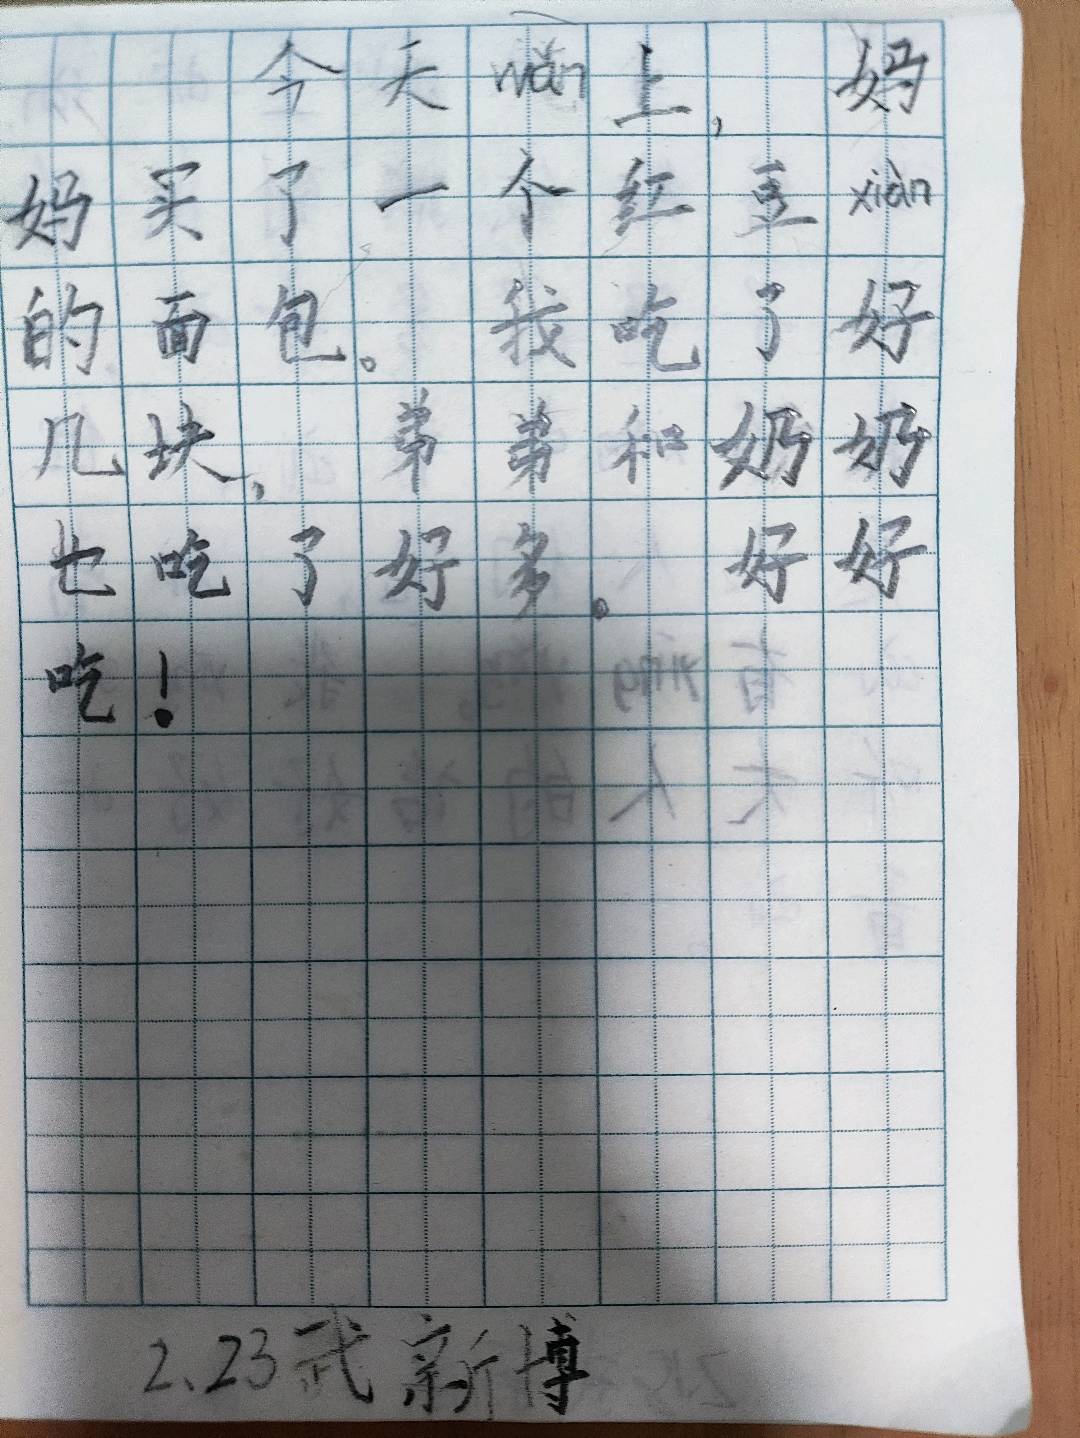 今天wǎn上，妈
妈买了一个红豆xiàn
的面包。我吃了好
几块，弟弟和奶奶
也吃了好多。好好
吃！
2.23武新博